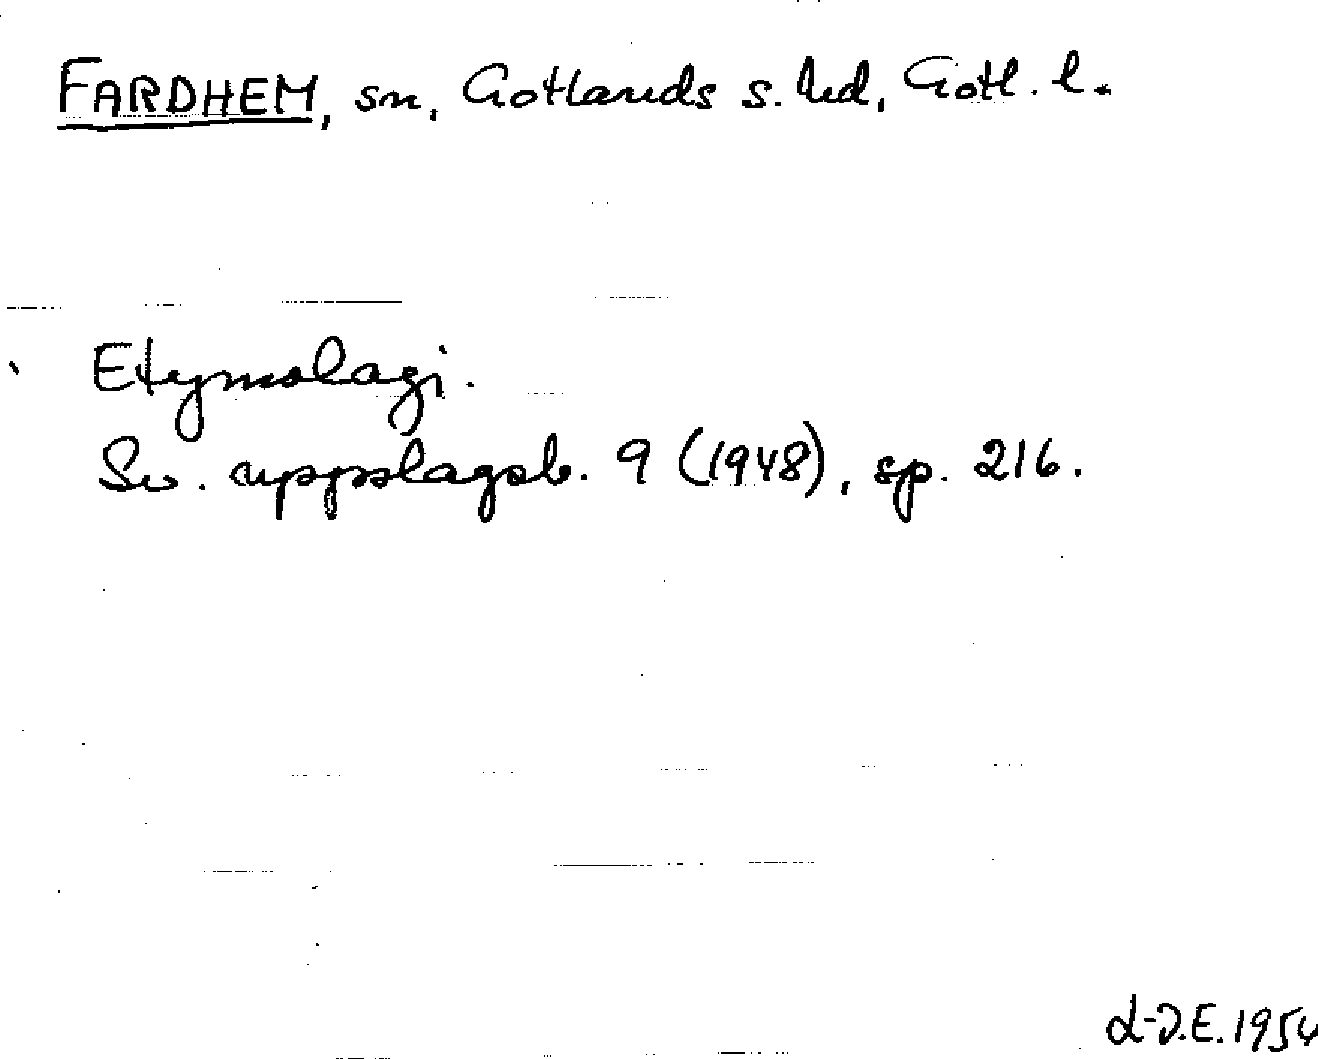 FARDHEM, sn, Gotlands s. hd, Gotl. l.
Etymologi.
Sv. uppslagsb. 9 (1948), sp. 216.
L-D.E. 1954